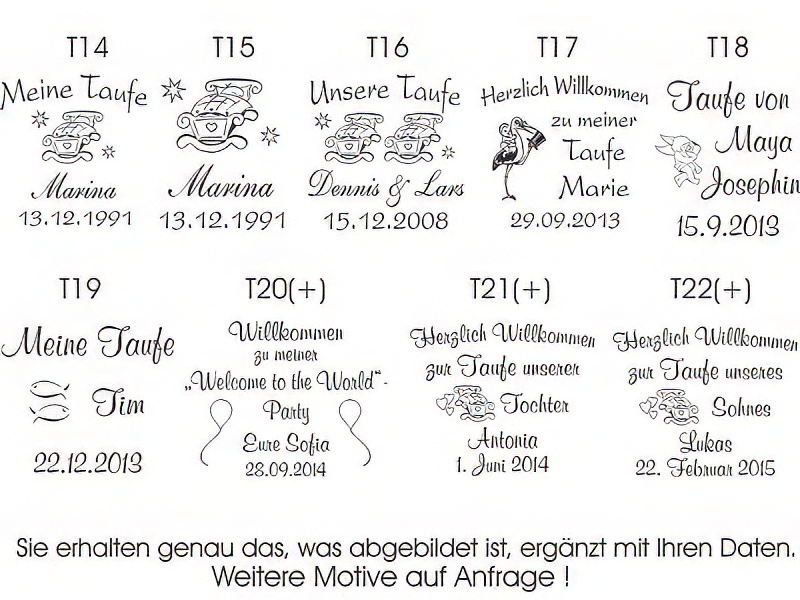 T14
Meine Taufe
Marina
13.12.1991
T15
Marina
13.12.1991
T16
Unsere Taufe
Dennis & Lars
15.12.2008
T17
Herzlich Willkommen
zu meiner
Taufe
Marie
29.09.2013
T18
Taufe von
Maya
Josephin
15.9.2013
T19
Meine Taufe
Tim
22.12.2013
T20(+)
Willkommen
zu meiner
„Welcome to the World“-
Party
Eure Sofia
28.09.2014
T21(+)
Herzlich Willkommen
zur Taufe unserer
Tochter
Antonia
1. Juni 2014
T22(+)
Herzlich Willkommen
zur Taufe unseres
Sohnes
Lukas
22. Februar 2015
Sie erhalten genau das, was abgebildet ist, ergänzt mit Ihren Daten.
Weitere Motive auf Anfrage !